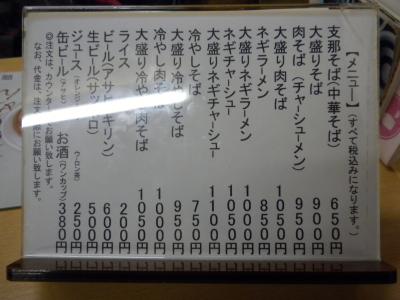 【メニュー】(すべて税込みになります。)
支那そば(中華そば) 650円
大盛りそば 900円
肉そば(チャーシューメン) 950円
大盛り肉そば 1050円
ネギラーメン 850円
大盛りネギラーメン 1000円
ネギチャーシュー 1050円
大盛りネギチャーシュー 1100円
冷やしそば 750円
大盛り冷やしそば 950円
冷やし肉そば 1000円
大盛り冷やし肉そば 1050円
ライス 200円
ビール(アサヒ・キリン) 600円
生ビール(サッポロ) 500円
ジュース(オレンジ ウーロン茶) 250円
缶ビール(アサヒ) お酒(ワンカップ) 380円
◎注文は、カウンターでお願い致します。
なお、代金は、注文の際にお願い致します。